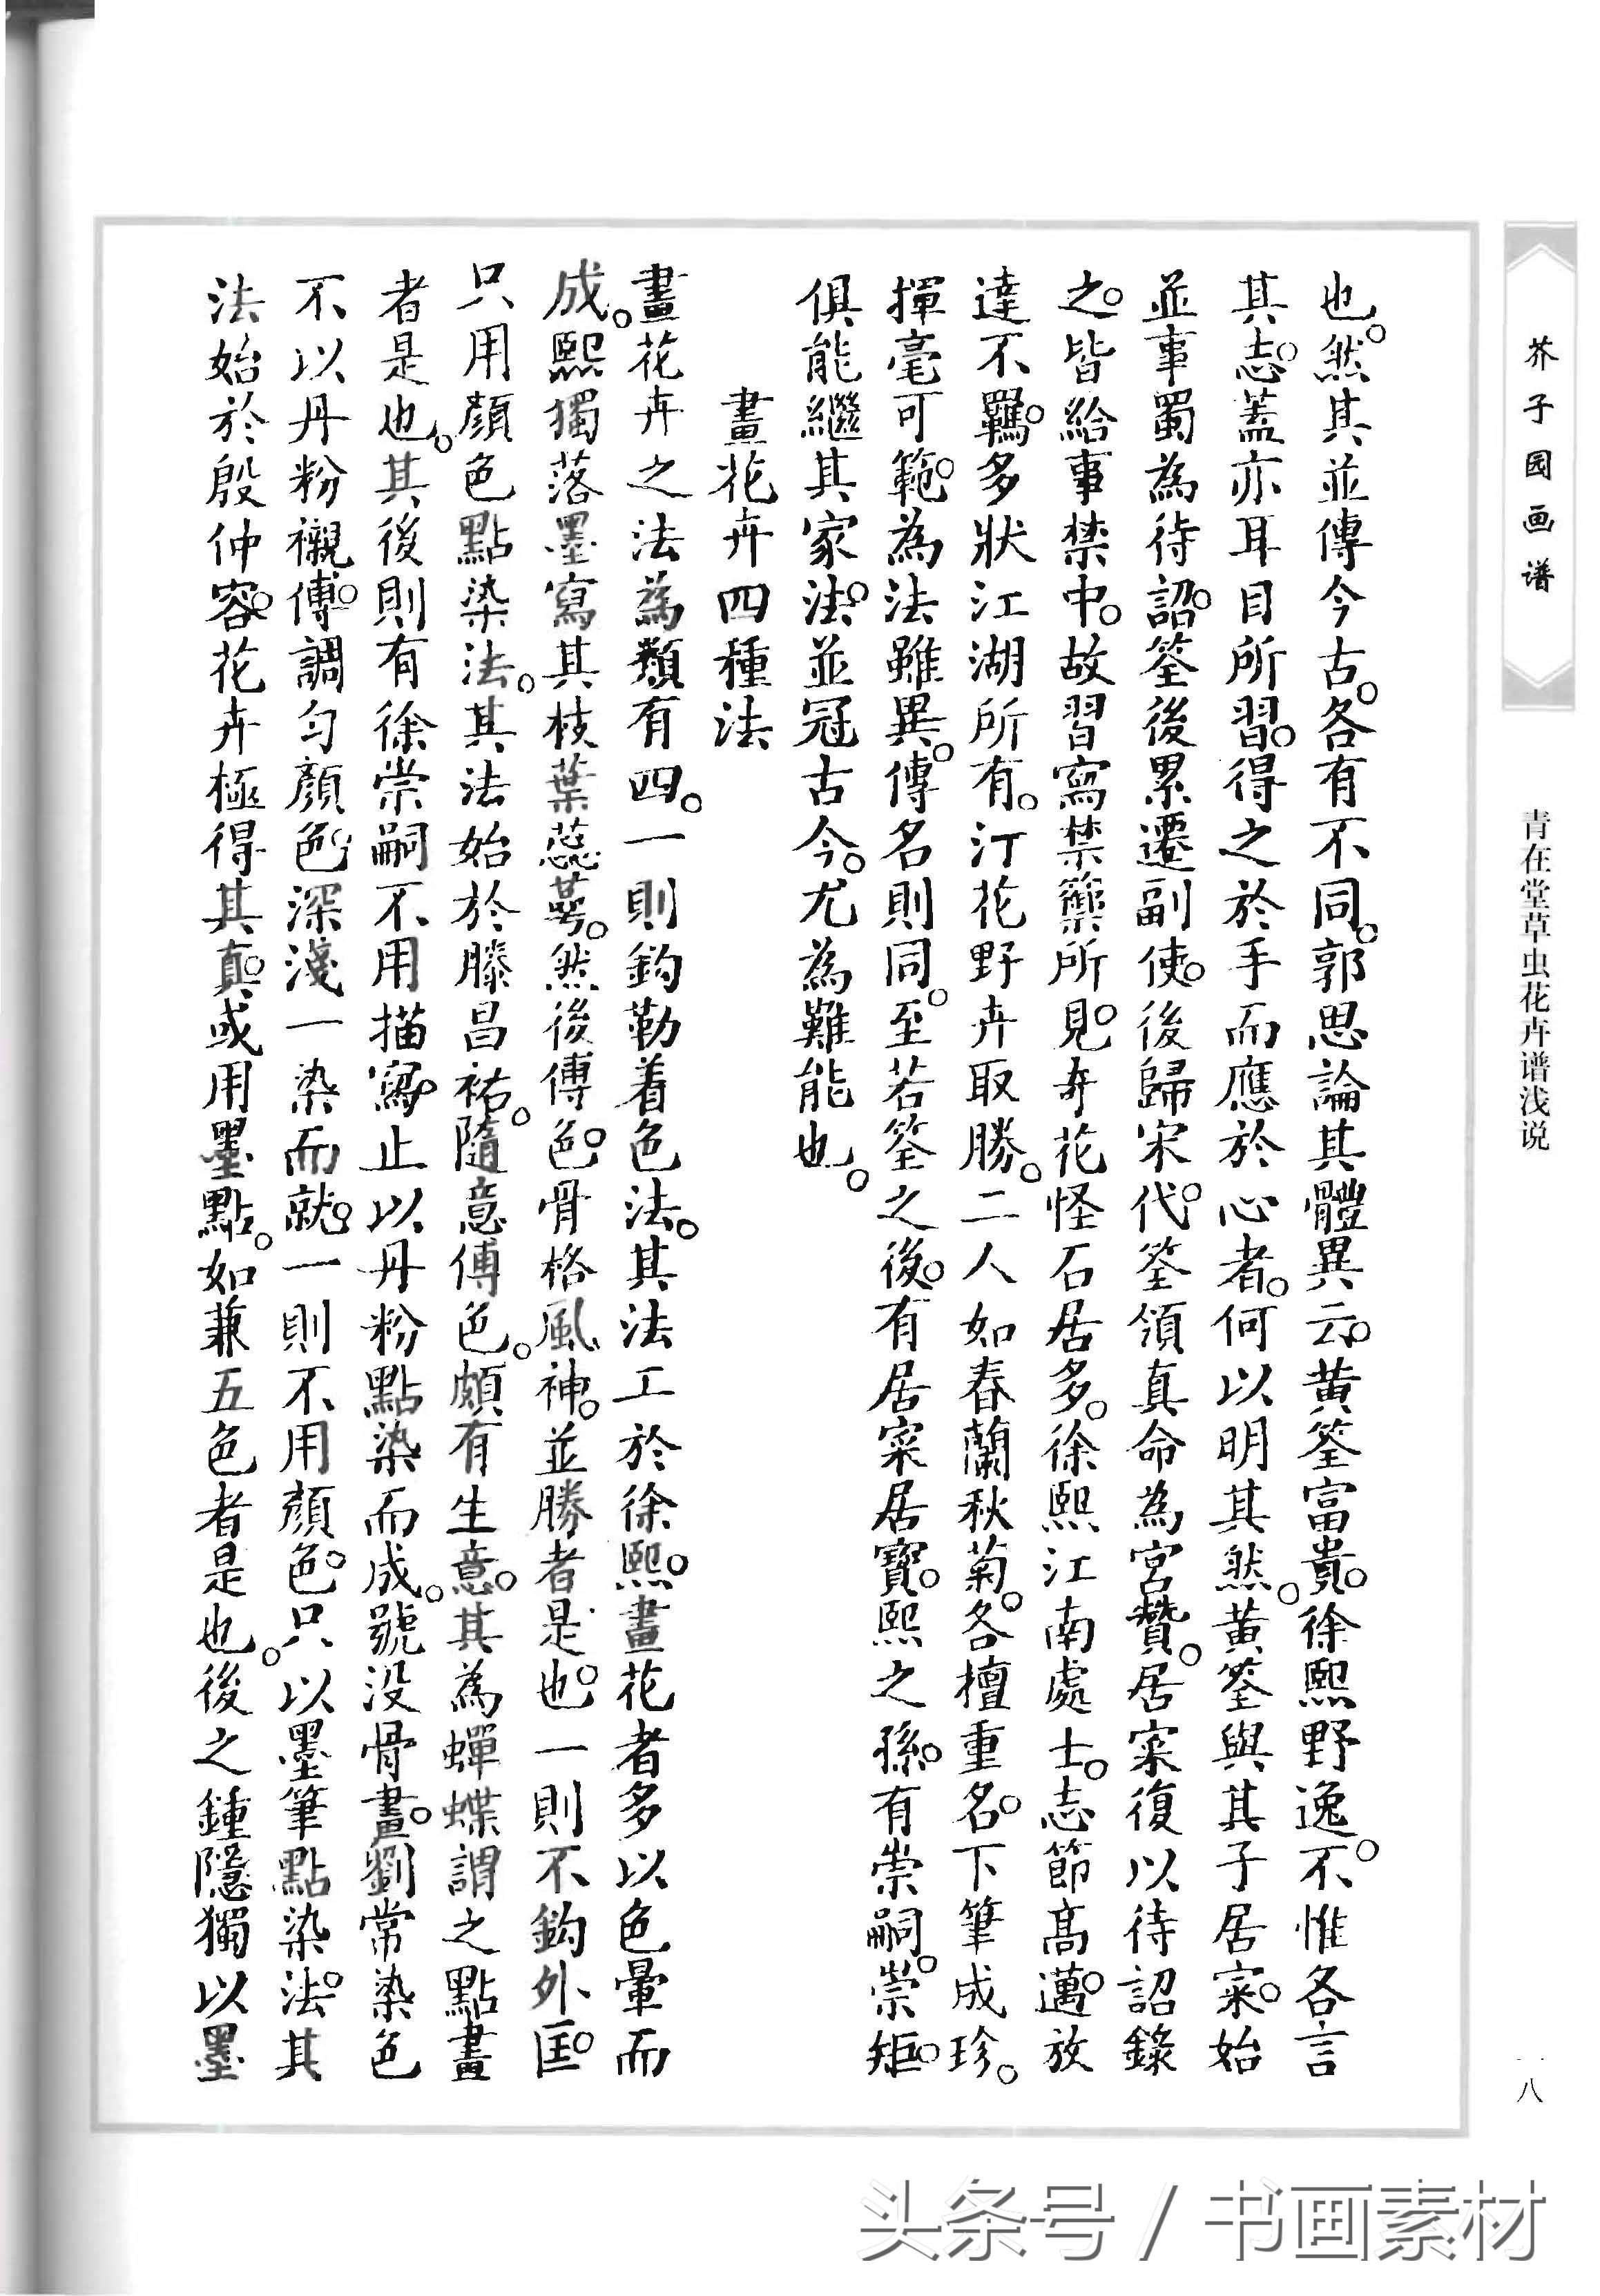 芥子园画谱
青在堂草虫花卉谱浅说
一八
也。然其並傳今古。各有不同。郭思論其體異云。黄筌富貴。徐熙野逸。不惟各言
其志。蓋亦耳目所習。得之於手而應於心者。何以明其然。黄筌與其子居寀。始
並事蜀為待詔。筌後累遷副使。後歸宋代。筌領真命為宮贊。居寀復以待詔錄
之。皆給事禁中。故習寫禁籞所見。奇花怪石居多。徐熙江南處士。志節高邁。放
達不羈。多狀江湖所有。汀花野卉取勝。二人如春蘭秋菊。各檀重名。下筆成珍。
揮毫可範。為法雖異。傳名則同。至若筌之後。有居寀居寶。熙之孫。有崇嗣。崇矩。
俱能繼其家法。並冠古今。尤為難能也。
畫花卉四種法
畫花卉之法為類有四。一則鈎勒着色法。其法工於徐熙。畫花者多以色暈而
成。熙獨落墨寫其枝葉蕊萼。然後傅色。骨格風神。並勝者是也。一則不鈎外匡。
只用顏色點染法。其法始於滕昌祐。隨意傅色。頗有生意。其為蟬蝶謂之點畫
者是也。其後則有徐崇嗣不用描寫。止以丹粉點染而成。號没骨畫。劉常染色
不以丹粉襯傅。調匀顏色。深淺一染而就。一則不用顏色。只以墨筆點染法。其
法始於殷仲容。花卉極得其真。或用墨點。如兼五色者是也。後之鍾隱獨以墨
头条号 / 书画素材